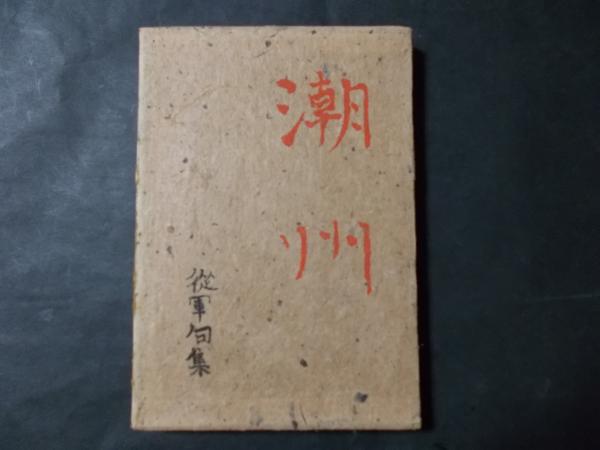 潮州
從軍句集